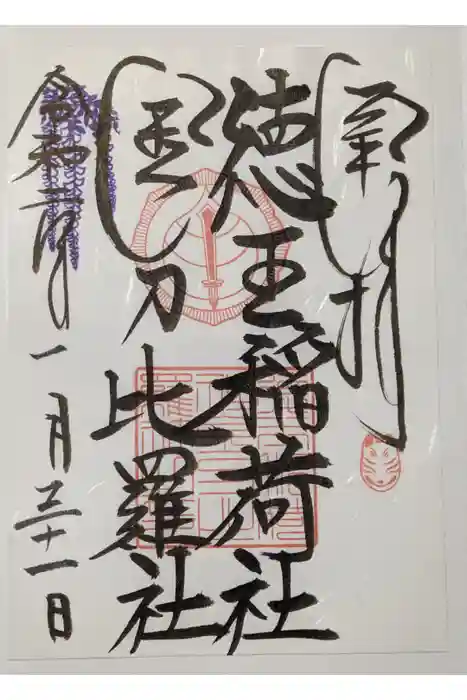 奉拝
徳王稲荷社
金刀比羅社
令和年一月三十一日